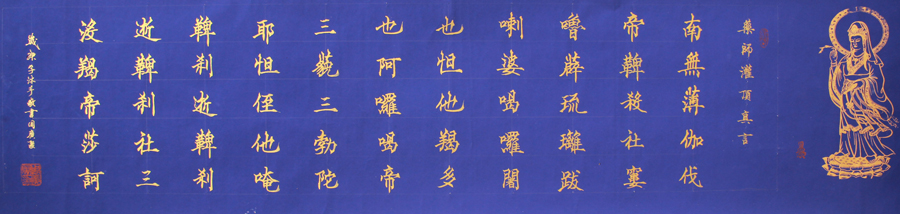 藥師灌頂真言
南無薄伽伐
帝鞞殺社窶
嚕薜琉璃跋
喇婆喝囉闍
也怛他羯多
也阿囉喝帝
三藐三勃陀
耶怛侄他唵
鞞刹逝鞞刹
逝鞞刹社三
沒羯帝莎訶
歲庚子沐手敬書